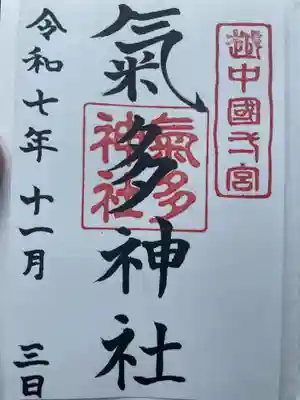 越中國弌宮
氣多神社
氣多
神社
令和七年十一月三日